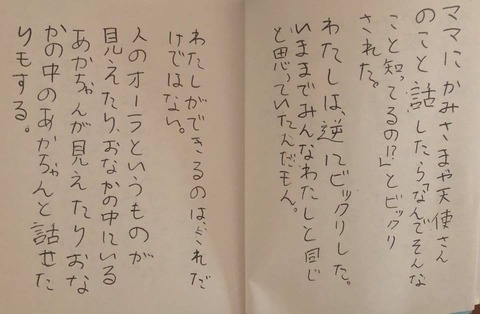 ママにかみさまや天使さん
のこと話したら「なんでそんな
こと知ってるの!?」とビックリ
された。
わたしは、逆にビックリした。
いままでみんなわたしと同じ
と思っていたんだもん。
わたしができるのは、これだ
けではない。
人のオーラというものが
見えたり、おなかの中にいる
あかちゃんが見えたりおな
かの中のあかちゃんと話せた
りもする。